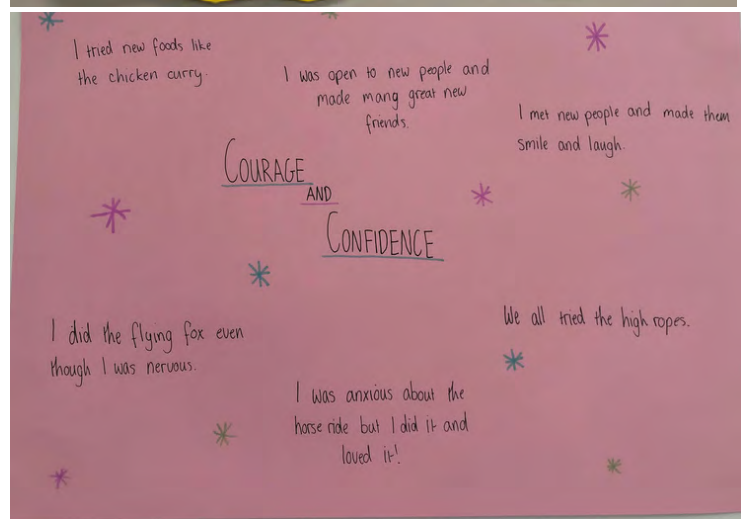 I tried new foods like
the chicken curry.
I was open to new people and
made mang great new
friends.
I met new people and made them
smile and laugh.
COURAGE
AND
CONFIDENCE
I did the flying fox even
though I was nervous.
We all tried the high ropes.
I was anxious about the
horse ride but I did it and
loved it!